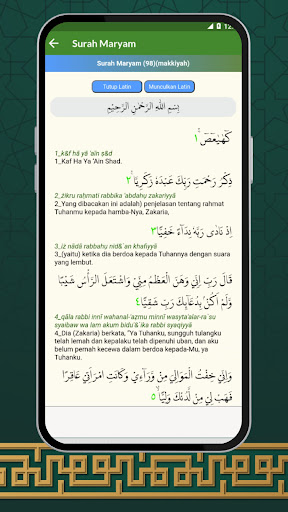 12:00
Surah Maryam
Surah Maryam (98)(makkiyah)
Tutup Latin
Munculkan Latin
بِسْمِ اللّٰهِ الرَّحْمٰنِ الرَّحِيْمِ
كۤهٰيٰعۤصۤ ۚ ١
1_kāf hā yā 'aīn ṣād
1_Kaf Ha Ya 'Ain Shad.
ذِكْرُ رَحْمَتِ رَبِّكَ عَبْدَهٗ زَكَرِيَّا ۚ ٢
2_żikru raḥmati rabbika 'abdahụ zakariyyā
2_Yang dibacakan ini adalah) penjelasan tentang rahmat
Tuhanmu kepada hamba-Nya, Zakaria,
اِذْ نَادٰى رَبَّهٗ نِدَاۤءً خَفِيًّا ٣
3_iz nādā rabbahụ nidā`an khafiyyā
3_(yaitu) ketika dia berdoa kepada Tuhannya dengan suara
yang lembut.
قَالَ رَبِّ اِنِّيْ وَهَنَ الْعَظْمُ مِنِّيْ وَاشْتَعَلَ الرَّأْسُ شَيْبًا
وَّلَمْ اَكُنْۢ بِدُعَاۤىِٕكَ رَبِّ شَقِيًّا ٤
4_qāla rabbi innī wahanal-'aẓmu minnī wasyta'alar-ra`su
syaibaw wa lam akum bidu'ā`ika rabbi syaqiyyā
4_Dia (Zakaria) berkata, "Ya Tuhanku, sungguh tulangku
telah lemah dan kepalaku telah dipenuhi uban, dan aku
belum pernah kecewa dalam berdoa kepada-Mu, ya
Tuhanku.
وَاِنِّيْ خِفْتُ الْمَوَالِيَ مِنْ وَّرَاۤءِيْ وَكَانَتِ امْرَاَتِيْ عَاقِرًا
فَهَبْ لِيْ مِنْ لَّدُنْكَ وَلِيًّا ۙ ٥